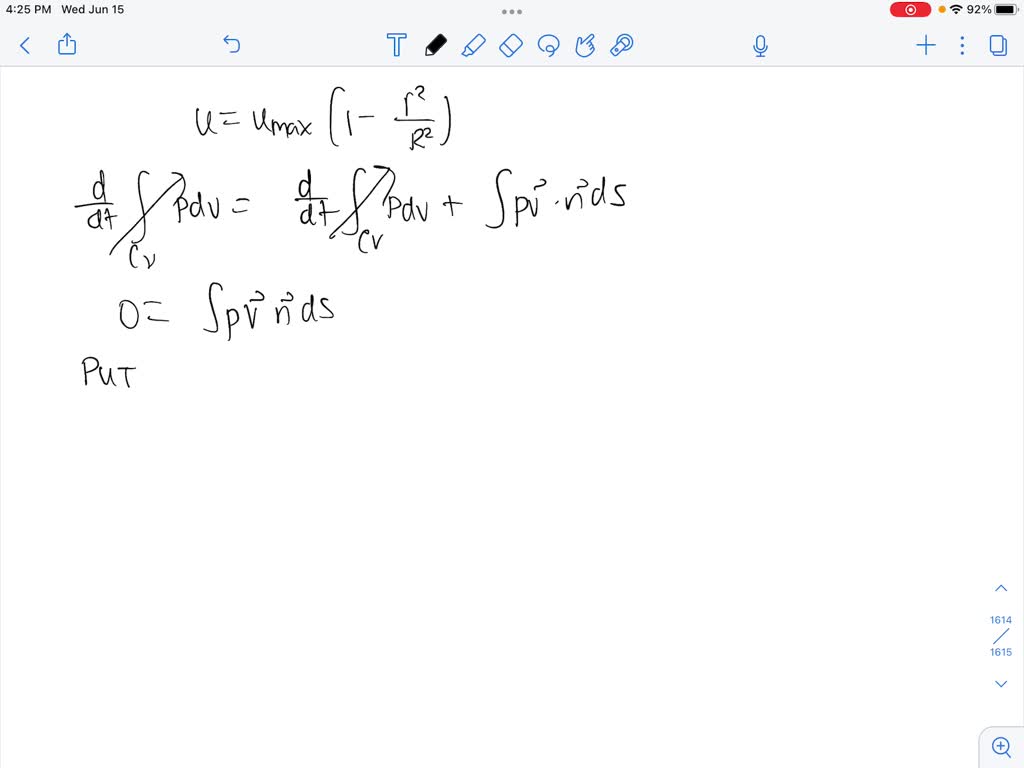 4:25 PM Wed Jun 15
92%
T
u = umax (1 - r²/R²)
d/dt ∫cv ρdv = d/dt ∫cv ρdv + ∫ρv⃗ · n⃗ ds
0 = ∫ρv⃗ n⃗ ds
PUT
1614
1615